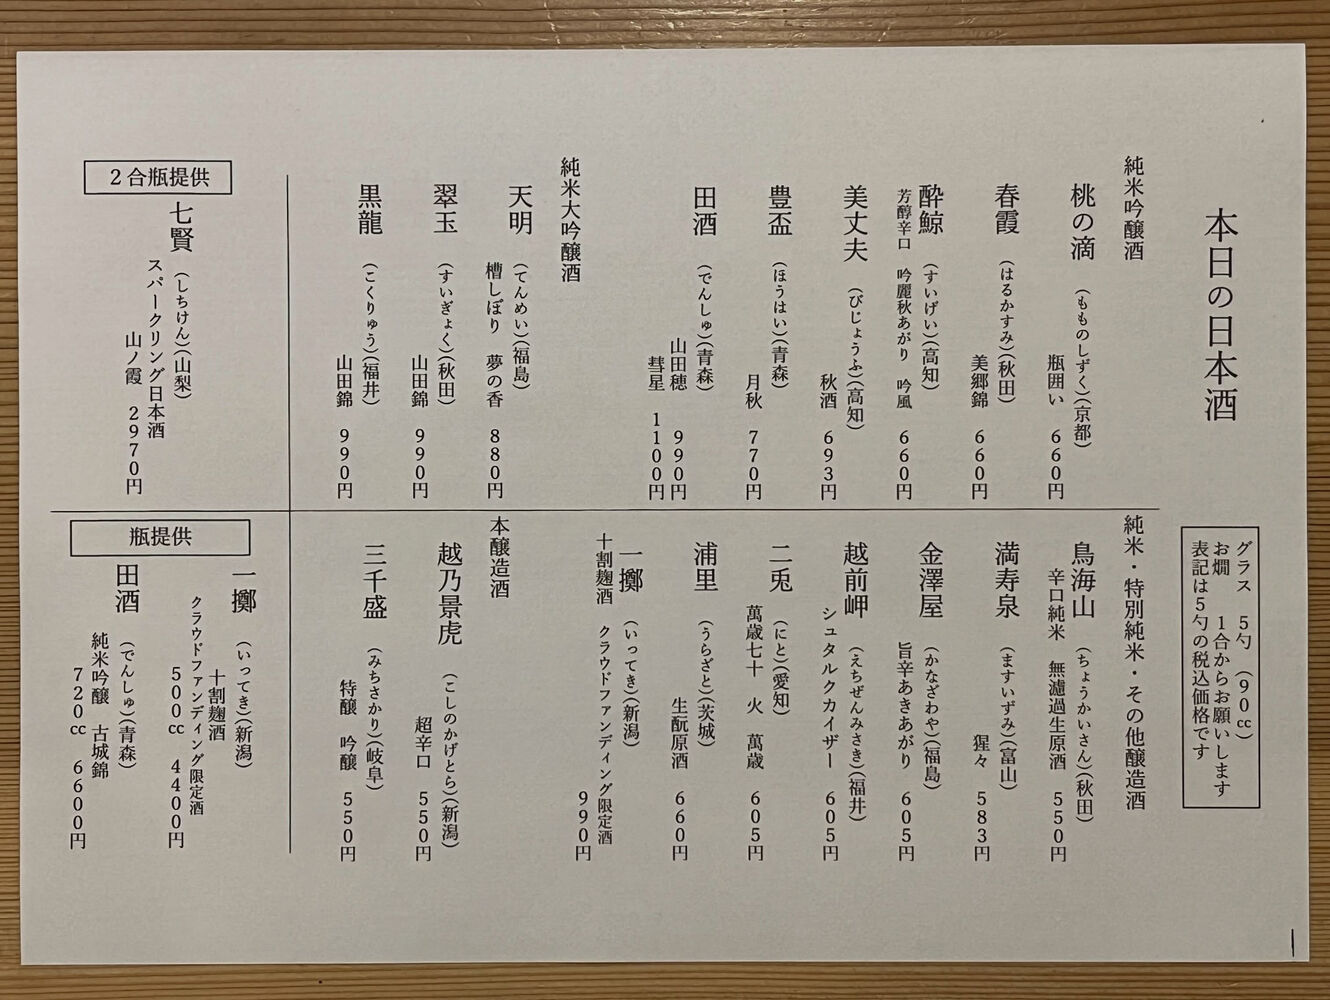 本日の日本酒
グラス　5勺　（90cc）
お燗　1合からお願いします
表記は5勺の税込価格です
純米吟醸酒
桃の滴　（もものしずく）（京都）
瓶囲い　660円
春霞　（はるかすみ）（秋田）
美郷錦　660円
酔鯨　（すいげい）（高知）
芳醇辛口　吟麗秋あがり　吟風　660円
美丈夫　（びじょうふ）（高知）
秋酒　693円
豊盃　（ほうはい）（青森）
月秋　770円
田酒　（でんしゅ）（青森）
山田穂　990円
彗星　1100円
純米大吟醸酒
天明　（てんめい）（福島）
槽しぼり　夢の香　880円
翠玉　（すいぎょく）（秋田）
山田錦　990円
黒龍　（こくりゅう）（福井）
山田錦　990円
純米・特別純米・その他醸造酒
鳥海山　（ちょうかいさん）（秋田）
辛口純米　無濾過生原酒　550円
満寿泉　（ますいずみ）（富山）
猩々　583円
金澤屋　（かなざわや）（福島）
旨辛あきあがり　605円
越前岬　（えちぜんみさき）（福井）
シュタルクカイザー　605円
二兎　（にと）（愛知）
萬歳七十　火　萬歳　605円
浦里　（うらざと）（茨城）
生酛原酒　660円
一擲　（いってき）（新潟）
十割麹酒　クラウドファンディング限定酒
990円
本醸造酒
越乃景虎　（こしのかげとら）（新潟）
超辛口　550円
三千盛　（みちさかり）（岐阜）
特醸　吟醸　550円
2合瓶提供
七賢　（しちけん）（山梨）
スパークリング日本酒
山ノ霞　2970円
瓶提供
一擲　（いってき）（新潟）
十割麹酒
クラウドファンディング限定酒
500cc　4400円
田酒　（でんしゅ）（青森）
純米吟醸　古城錦
720cc　6600円